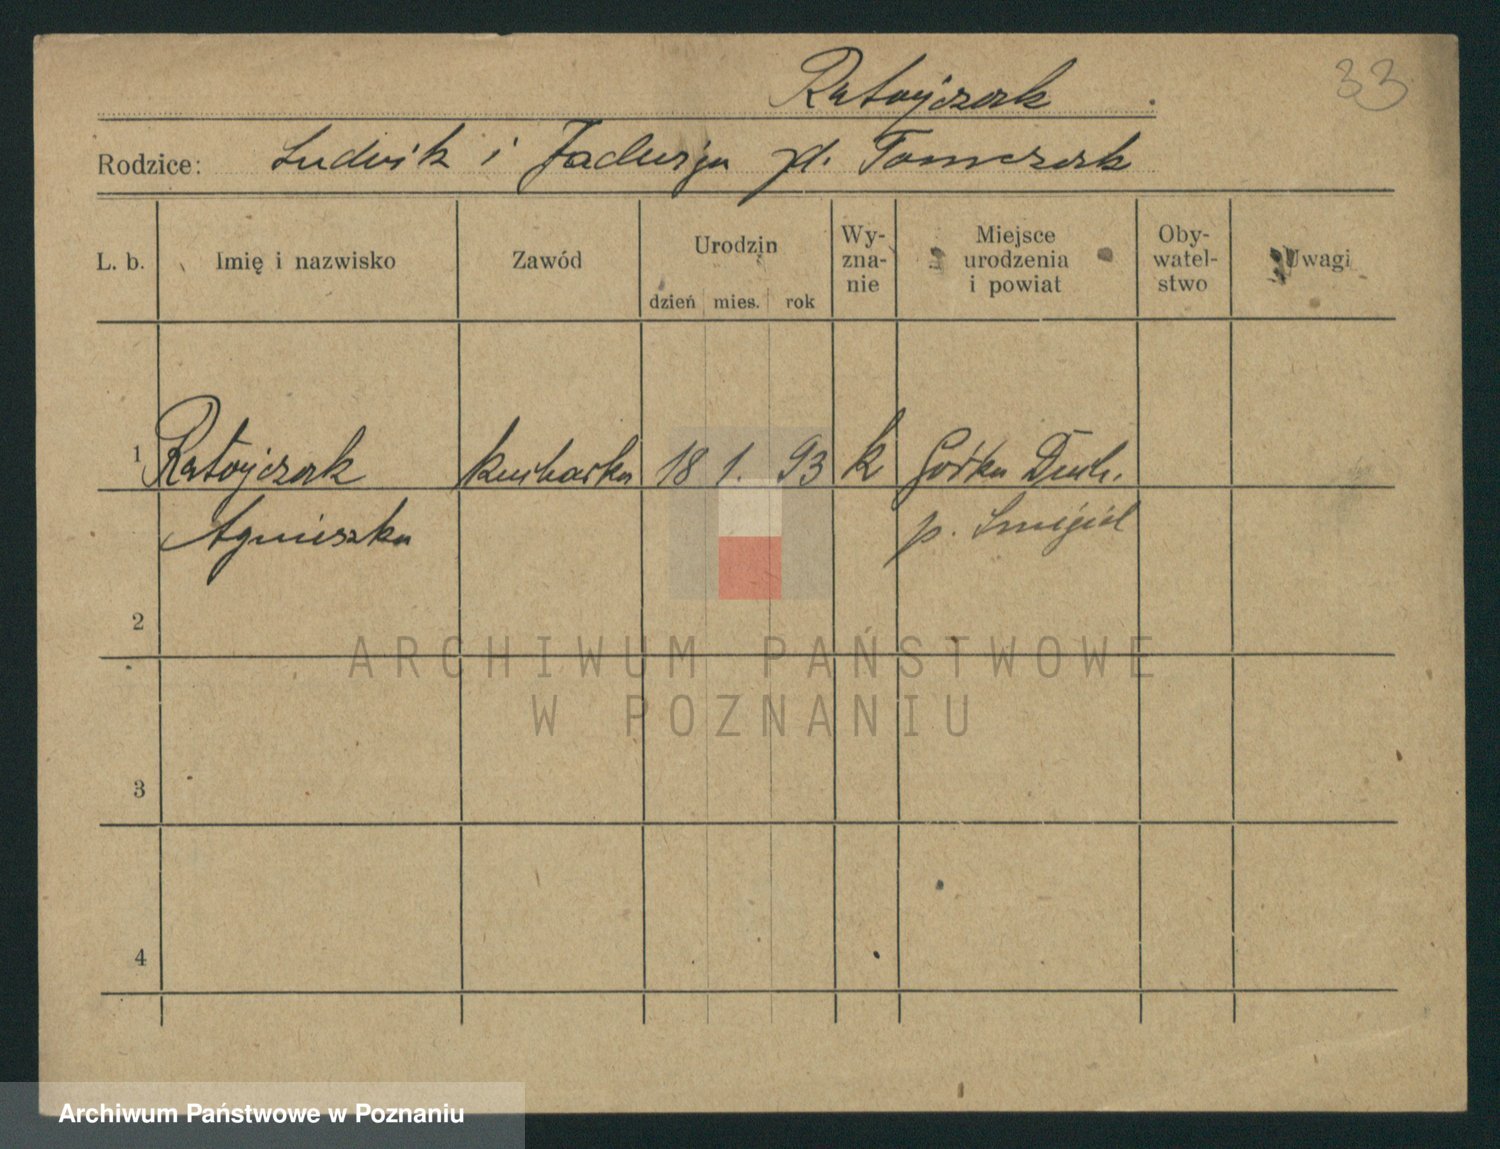 Ratajczak
33
Rodzice: Ludwik i Jadwiga zd. Tomczak
L. b.
Imię i nazwisko
Zawód
Urodzin
dzień mies. rok
Wy-
zna-
nie
Miejsce
urodzenia
i powiat
Oby-
watel-
stwo
Uwagi
1 Ratajczak kucharka 18 1. 93 k Górka Duch.
Agnieszka p. Śmigiel
2
3
4
ARCHIWUM PAŃSTWOWE
W POZNANIU
Archiwum Państwowe w Poznaniu